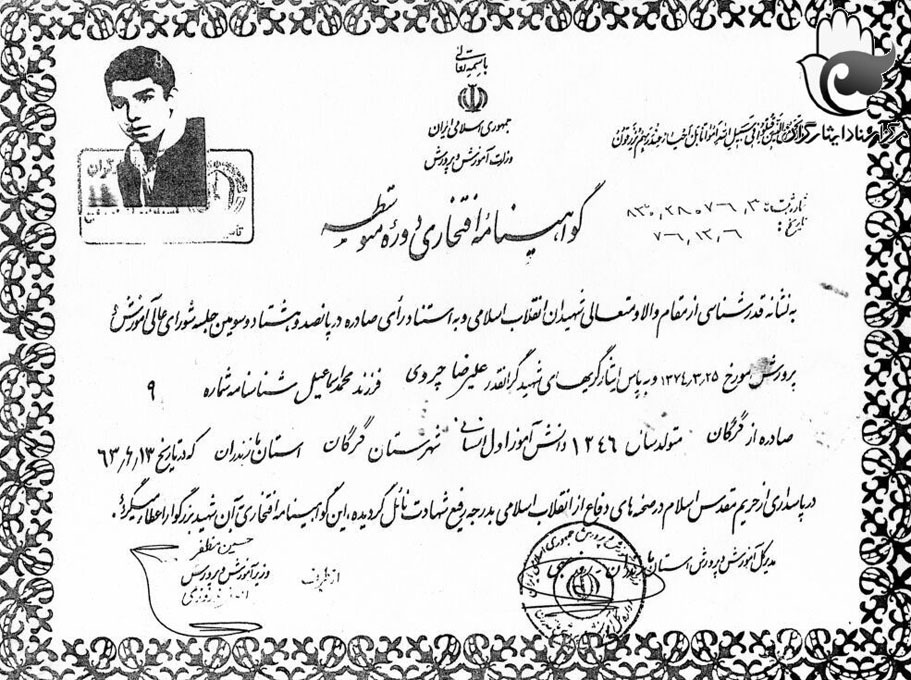 باسمه تعالی
جمهوری اسلامی ایران
وزارت آموزش و پرورش
گواهینامه افتخاری دوره متوسطه
تاریخ: ۷۶,۱۲,۶
به نشانه قدرشناسی از مقام والا و متعالی شهیدان انقلاب اسلامی و به استناد رأی صادره در پانصد و هشتاد و سومین جلسه شورای عالی آموزش و
پرورش مورخ ۱۳۷۴,۳,۲۵ و به پاس ایثارگریهای شهید گرانقدر علیرضا چروی فرزند محمد اسماعیل شناسنامه شماره ۹
صادره از گرگان متولد سال ۱۳۴۶ دانش آموز اول انسانی شهرستان گرگان استان مازندران که در تاریخ ۶۳,۶,۱۳
در پاسداری از حریم مقدس اسلام در صحنه های دفاع از انقلاب اسلامی بدرجه رفیع شهادت نائل گردیده، این گواهینامه افتخاری آن شهید بزرگوار اعطا میگردد.
مدیرکل آموزش و پرورش استان مازندران
از طرف
حسین مظفر
وزیر آموزش و پرورش